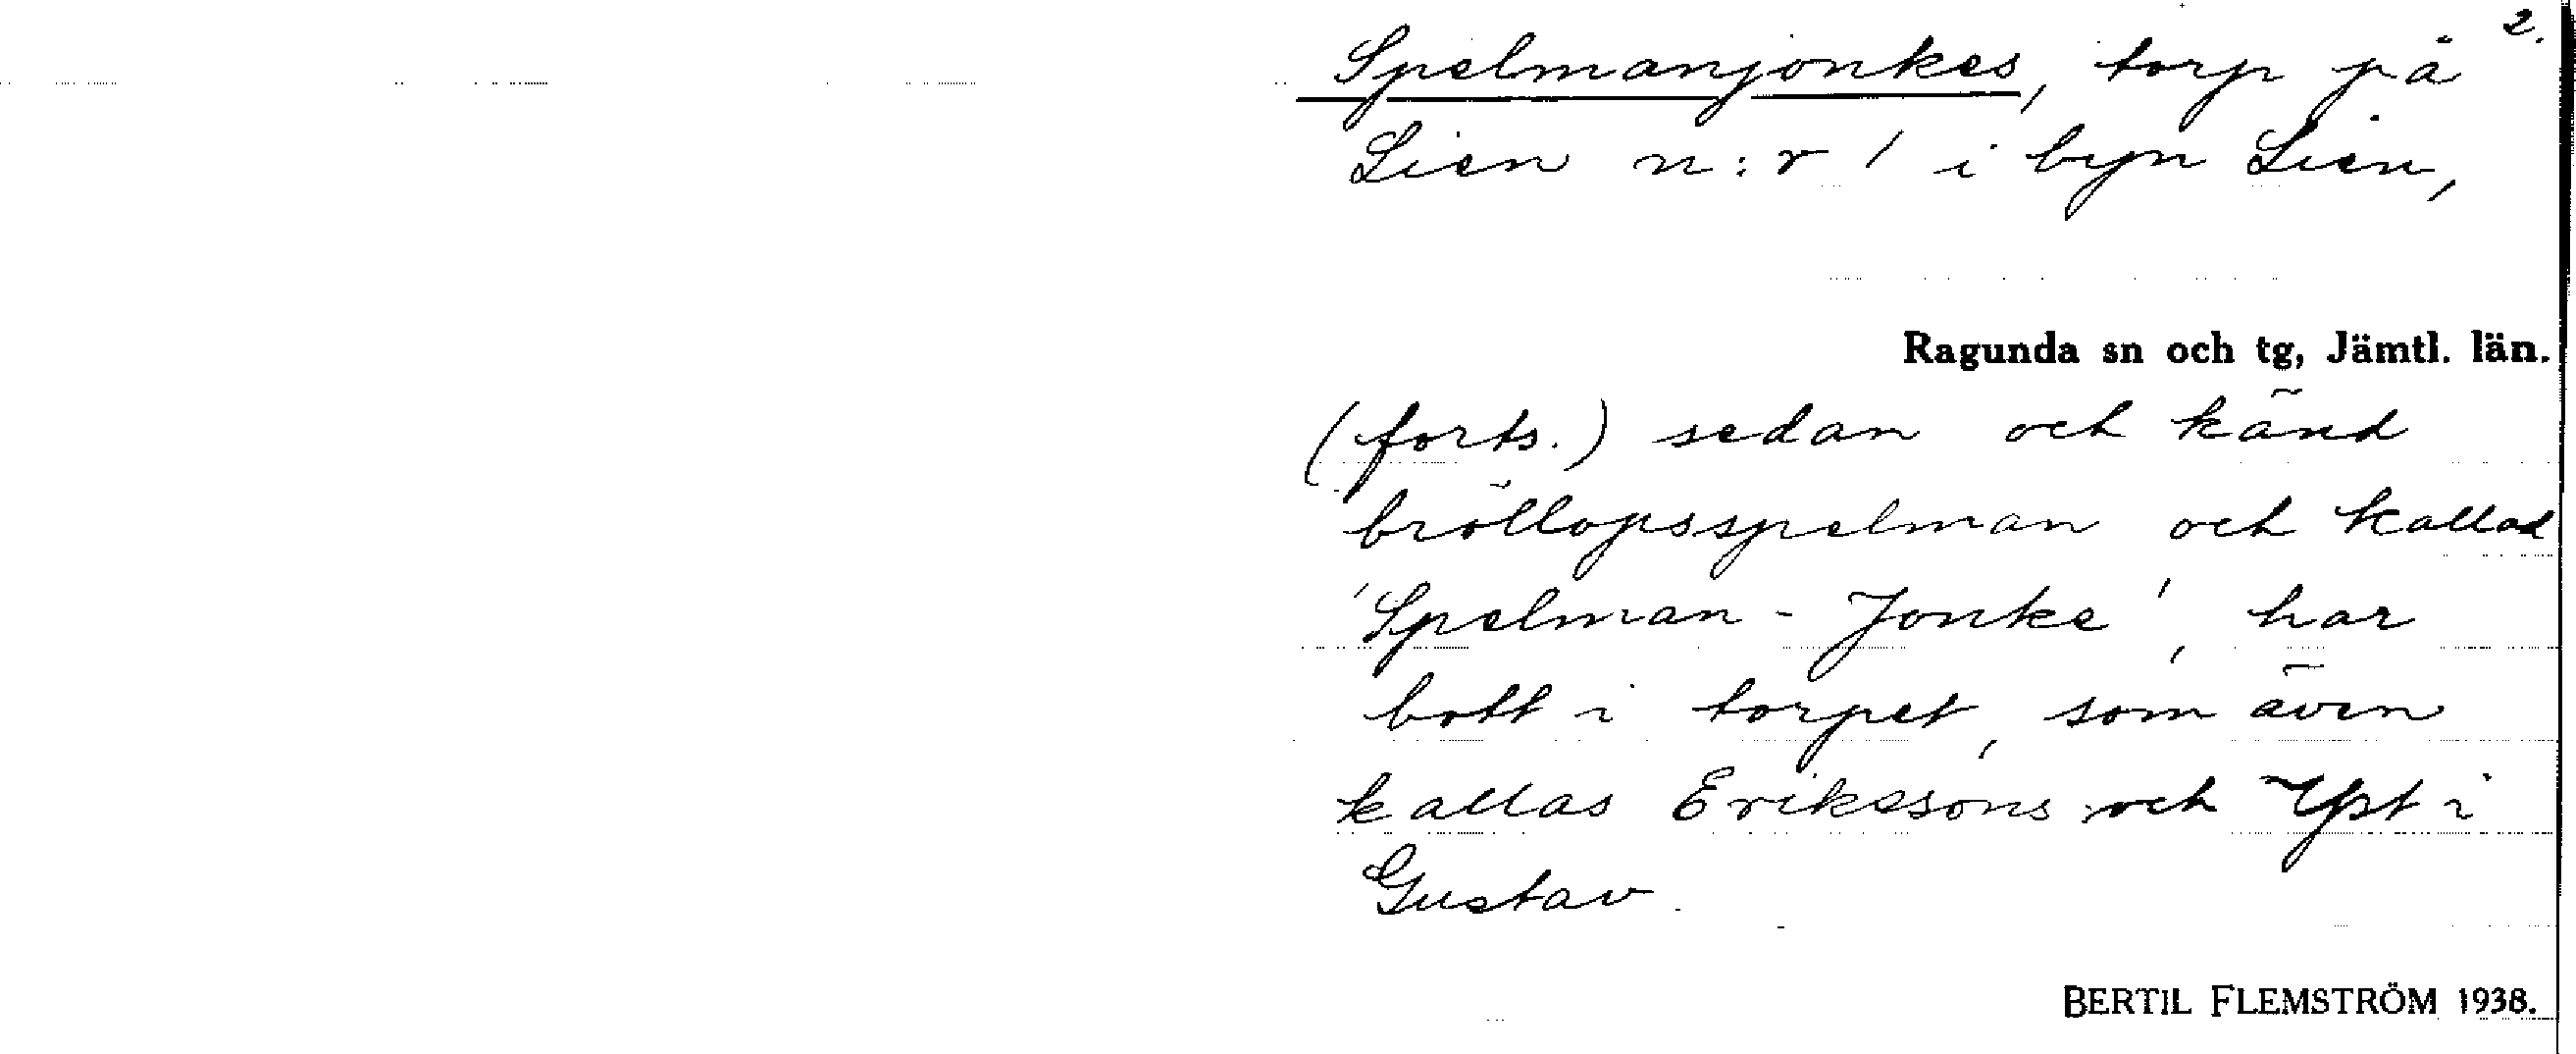 2.
Spelmanjonkes, torp på
Lien n:r 1 i byn Lien,
Ragunda sn och tg, Jämtl. län.
(forts.) sedan och känd
bröllopsspelman och kallad
'Spelman-Jonke', har
bott i torpet, som även
kallas Erikssons och Yst i
Gustav.
BERTIL FLEMSTRÖM 1938.